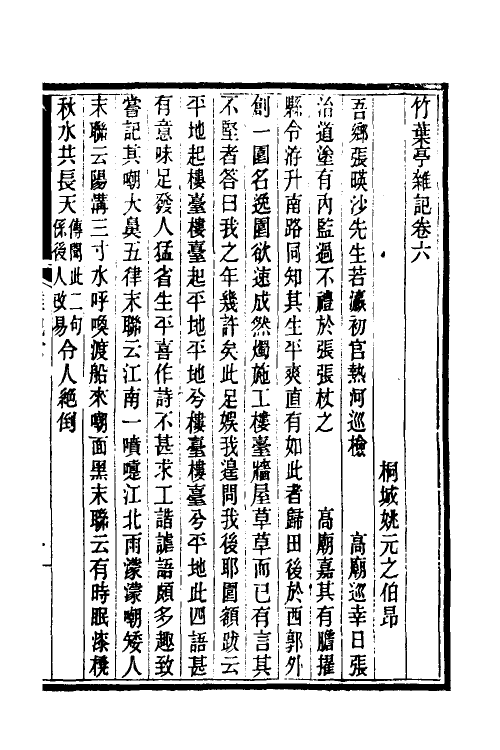 竹葉亭雜記卷六
桐城姚元之伯昂
吾鄉張暎沙先生若瀛初官熱河巡檢　高廟巡幸日張
治道塗有內監過不禮於張張杖之　高廟嘉其有膽擢
縣令游升南路同知其生平爽直有如此者歸田後於西郭外
創一園名逸園欲速成然燭施工樓臺牆屋草草而已有言其
不堅者答曰我之年幾許矣此足娛我遑問我後耶園額跋云
平地起樓臺樓臺起平地平地兮樓臺樓臺兮平地此四語甚
有意味足發人猛省生平喜作詩不甚求工諧謔語頗多趣致
嘗記其嘲大鼻五律末聯云江南一噴嚏江北雨濛濛嘲矮人
末聯云陽溝三寸水呼喚渡船來嘲面黑末聯云有時眠漆櫈
秋水共長天傳聞此二句係後人改易令人絕倒